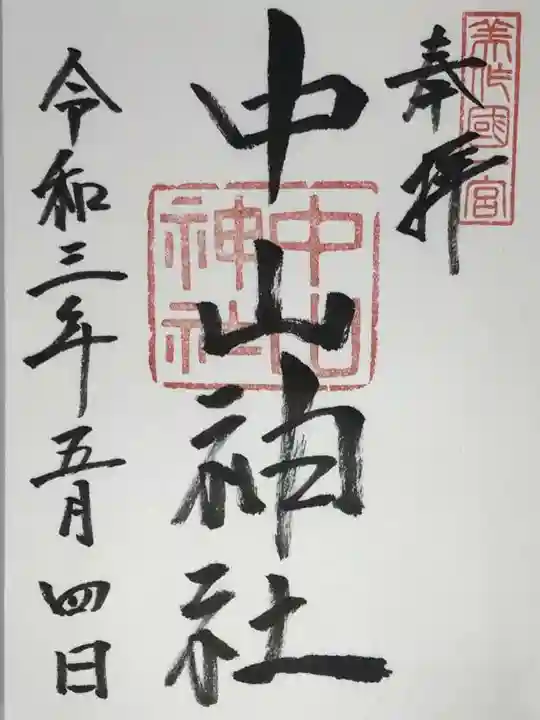 美作國一宮
奉拝
中山神社
中山神社
令和三年五月四日